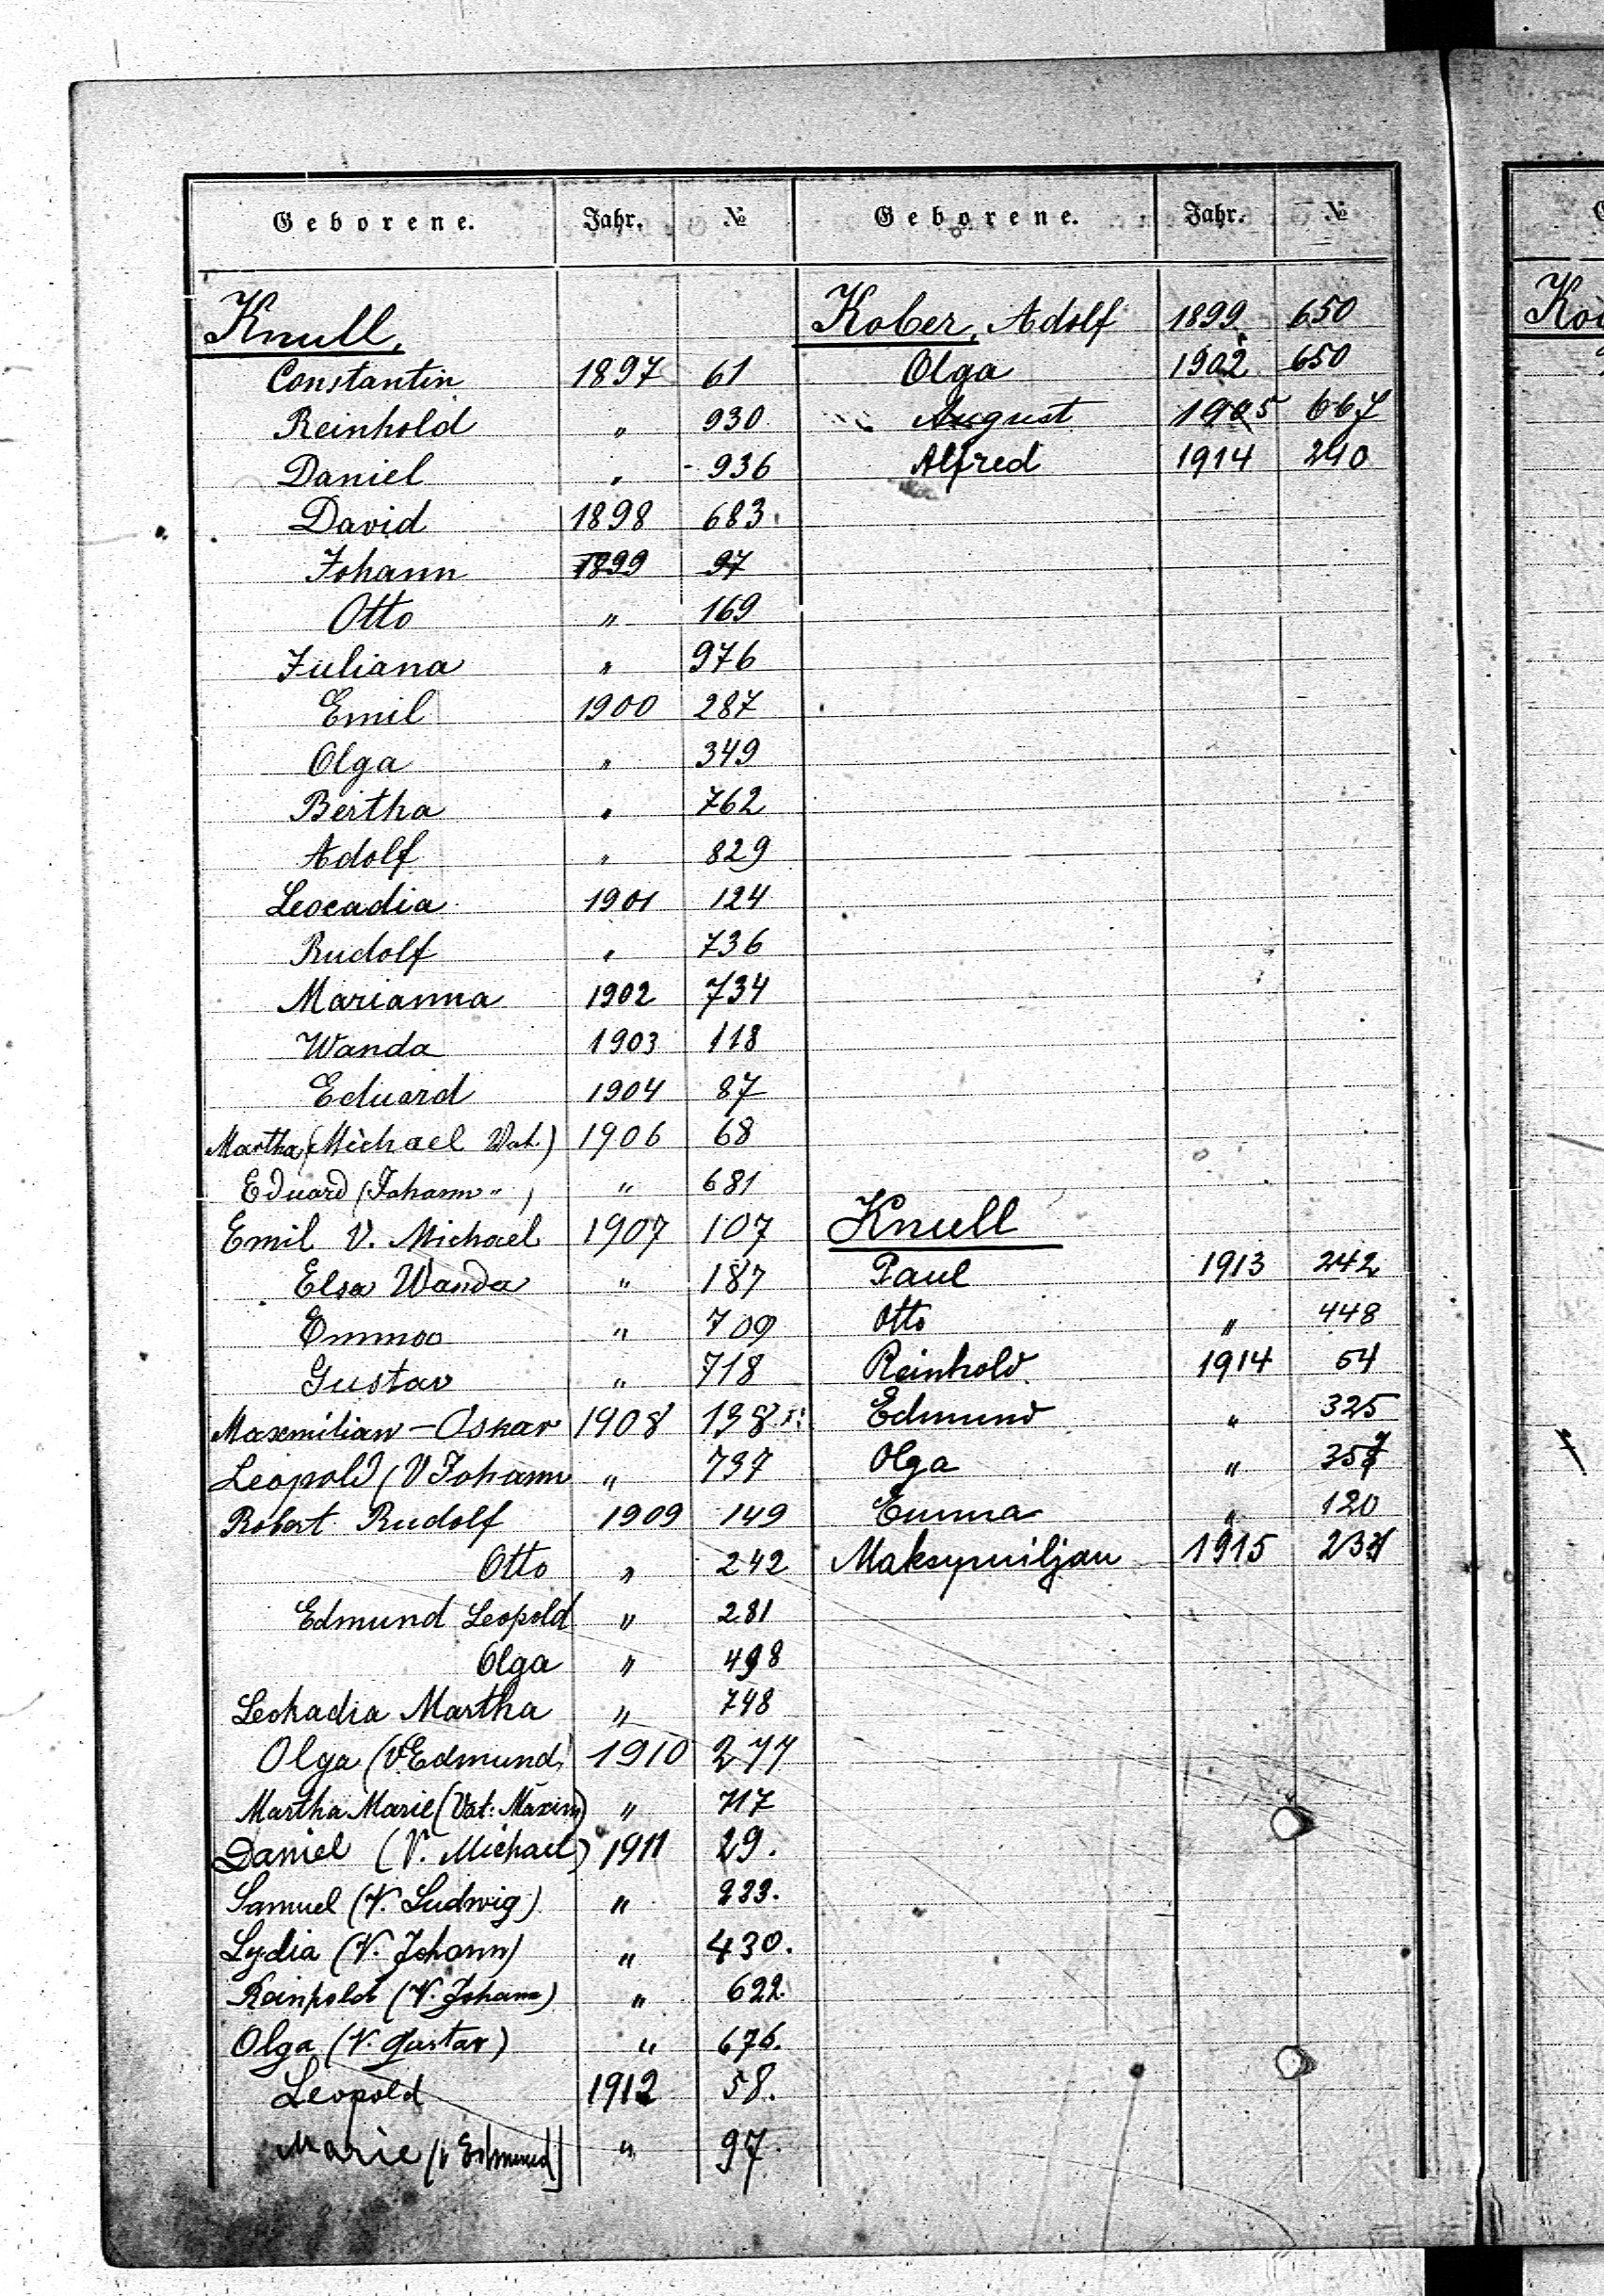 Geborene. Jahr. №
Knull,
Constantin 1897 61
Reinhold " 930
Daniel " 936
David 1898 683
Johann 1899 97
Otto " 169
Juliana " 976
Emil 1900 287
Olga " 349
Bertha " 762
Adolf " 829
Leocadia 1901 124
Rudolf " 736
Marianna 1902 734
Wanda 1903 118
Eduard 1904 87
Martha (Michael Vat.) 1906 68
Eduard (Johann " ) " 681
Emil V. Michael 1907 107
Elsa Wanda " 187
Emma " 709
Gustav " 718
Maxmilian - Oskar 1908 138
Leopold (V Johann " 737
Robert Rudolf 1909 149
Otto " 242
Edmund Leopold " 281
Olga " 498
Leokadia Martha " 748
Olga (V. Edmund) 1910 277
Martha Marie (Vat: Maxim) " 717
Daniel (V. Michael) 1911 29.
Samuel (V. Ludwig) " 233.
Lydia (V. Johann) " 430.
Reinhold (V. Johann) " 622.
Olga (V. Gustav) " 676.
Leopold 1912 58.
Marie (V Edmund) " 97.
Geborene. Jahr. №
Kober, Adolf 1899 650
Olga 1902 650
August 1905 667
Alfred 1914 240
Knull
Paul 1913 242
Otto " 448
Reinhold 1914 54
Edmund " 325
Olga " 357
Emma " 120
Maksymiljan 1915 234